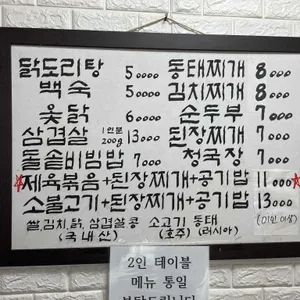 닭도리탕 50000 동태찌개 8000
백숙 50000 김치찌개 8000
옻닭 60000 순두부 7000
삼겹살 1인분 200g 13000 된장찌개 7000
돌솥비빔밥 7000 청국장 7000
★제육볶음+된장찌개+공기밥 11000★
소불고기+된장찌개+공기밥 13000
(2인 이상)
쌀,김치,닭,삼겹살,콩 소고기 동태
(국내산) (호주) (러시아)
2인 테이블
메뉴 통일
부탁드립니다